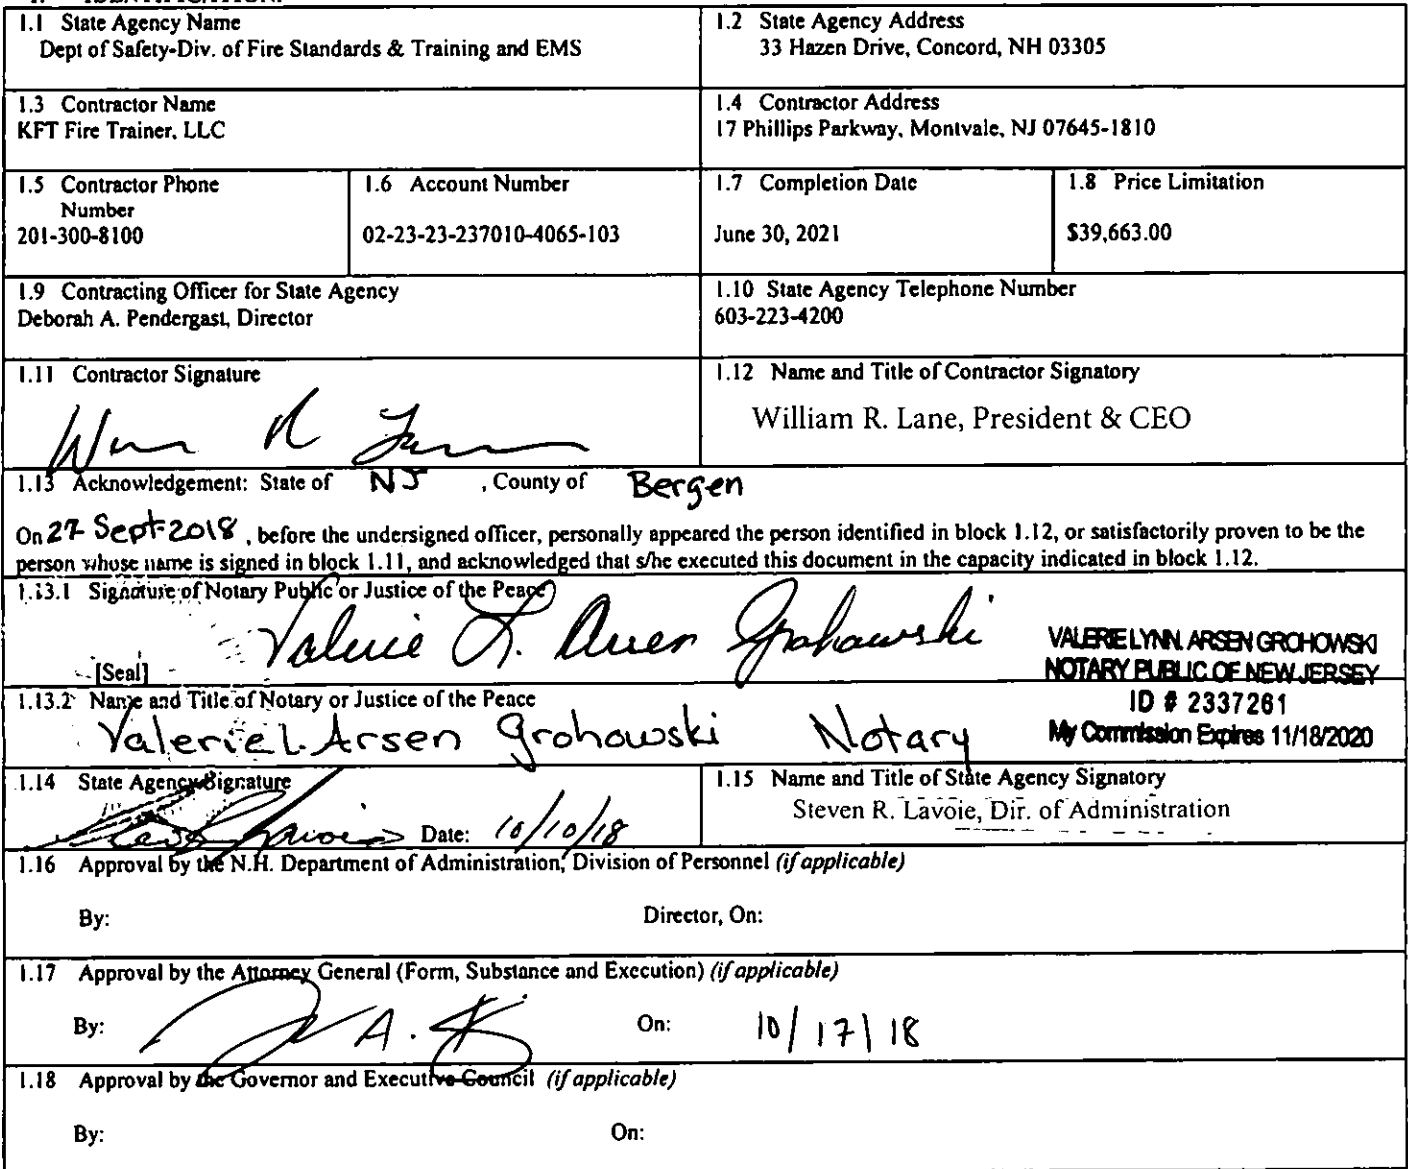 1.1 State Agency Name
Dept of Safety-Div. of Fire Standards & Training and EMS
1.2 State Agency Address
33 Hazen Drive, Concord, NH 03305
1.3 Contractor Name
KFT Fire Trainer, LLC
1.4 Contractor Address
17 Phillips Parkway, Montvale, NJ 07645-1810
1.5 Contractor Phone
Number
201-300-8100
1.6 Account Number
02-23-23-237010-4065-103
1.7 Completion Date
June 30, 2021
1.8 Price Limitation
$39,663.00
1.9 Contracting Officer for State Agency
Deborah A. Pendergast, Director
1.10 State Agency Telephone Number
603-223-4200
1.11 Contractor Signature
1.12 Name and Title of Contractor Signatory
William R. Lane, President & CEO
1.13 Acknowledgement: State of NJ , County of Bergen
On 27 Sept 2018 , before the undersigned officer, personally appeared the person identified in block 1.12, or satisfactorily proven to be the
person whose name is signed in block 1.11, and acknowledged that s/he executed this document in the capacity indicated in block 1.12.
1.13.1 Signature of Notary Public or Justice of the Peace
Valerie L. Arsen Grohowski
[Seal]
VALERIE LYNN ARSEN GROHOWSKI
NOTARY PUBLIC OF NEW JERSEY
ID # 2337261
My Commission Expires 11/18/2020
1.13.2 Name and Title of Notary or Justice of the Peace
Valerie L. Arsen Grohowski Notary
1.14 State Agency Signature
Date: 10/10/18
1.15 Name and Title of State Agency Signatory
Steven R. Lavoie, Dir. of Administration
1.16 Approval by the N.H. Department of Administration, Division of Personnel (if applicable)
By: Director, On:
1.17 Approval by the Attorney General (Form, Substance and Execution) (if applicable)
By: On: 10/17/18
1.18 Approval by the Governor and Executive Council (if applicable)
By: On: